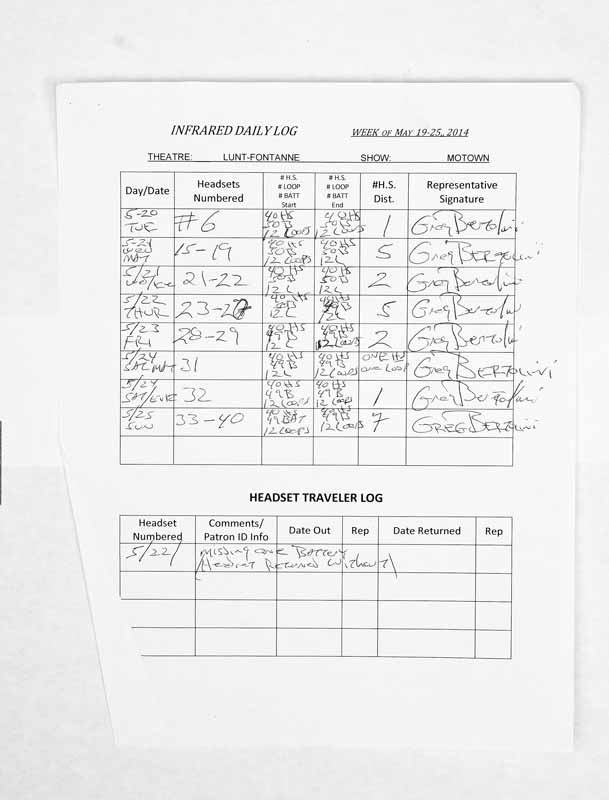 INFRARED DAILY LOG WEEK OF MAY 19-25, 2014
THEATRE: LUNT-FONTANNE SHOW: MOTOWN
Day/Date Headsets Numbered # H.S. # LOOP # BATT Start # H.S. # LOOP # BATT End #H.S. Dist. Representative Signature
5-20 TUE #6 40 HS 50 B 12 LOOPS 40 HS 50 B 12 LOOPS 1 Greg Bertolini
5-21 WED MAT 15-19 40 HS 50B 12 LOOPS 40 HS 50B 12L 5 Greg Bertolini
5/21 21-22 40 HS 12 L 40 HS 50 B 12 L 2 Greg Bertolini
5/22 THUR 23-27 40 HS 12 L 12L 5 Greg Bertolini
5/23 FRI 28-29 40 HS 49 B 12 L 40 HS 49B 12 Loops 2 Greg Bertolini
5/24 SAT MAT 31 40 HS 49B 12L 40 HS 49B 12 Loops ONE HS one Loop Greg BERTOLINI
5/24 SAT/EVE 32 40 HS 49B 12 LOOPS 40 HS 49B 12 Loops 1 Greg Bertolini
5/25 SUN 33-40 40 HS 49 BAT 12 LOOPS 40 HS 49B 12 LOOPS 7 GREG BERTOLINI
HEADSET TRAVELER LOG
Headset Numbered Comments/ Patron ID Info Date Out Rep Date Returned Rep
5/22/ Missing one Battery
(Headset Returned Without)